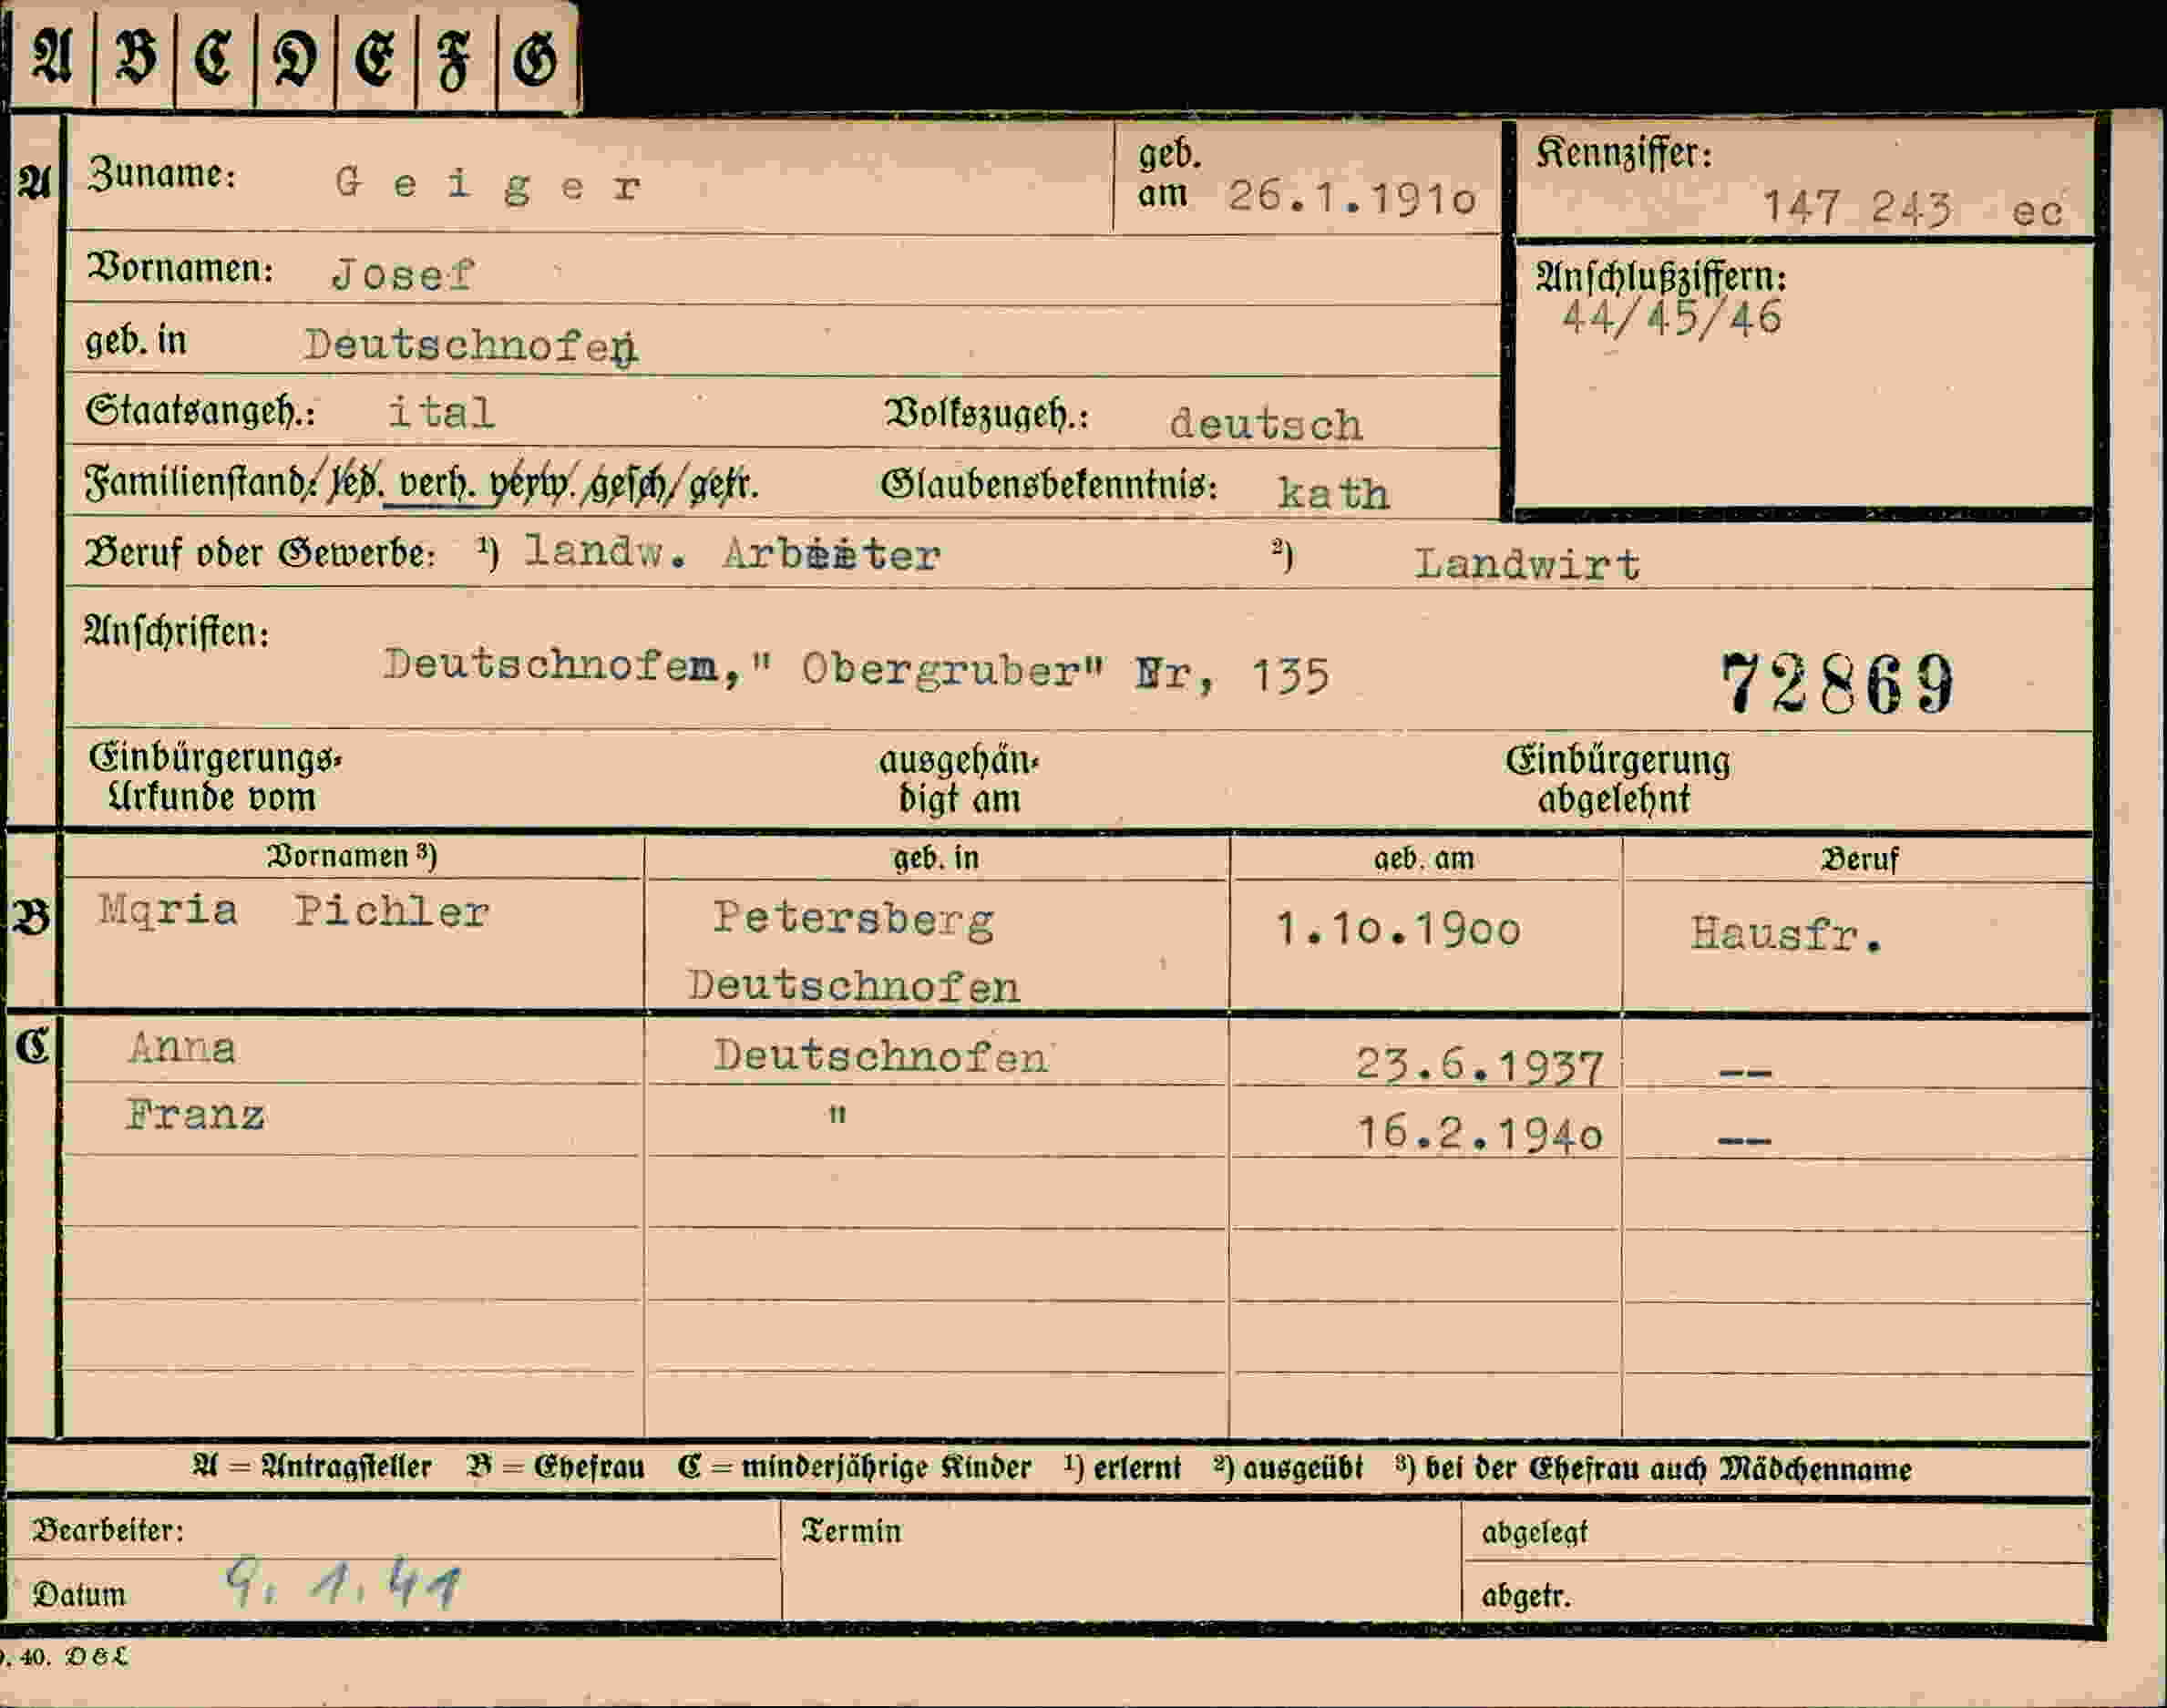 A B C D E F G
A Zuname: Geiger geb. am 26.1.191o Kennziffer: 147 243 ec
Vornamen: Josef Anschlußziffern:
44/45/46
geb. in Deutschnofen
Staatsangeh.: ital Volkszugeh.: deutsch
Familienstand: led. verh. verw. gesch/getr. Glaubensbekenntnis: kath
Beruf oder Gewerbe: ¹) landw. Arbeiter ²) Landwirt
Anschriften:
Deutschnofen," Obergruber" Nr, 135 72869
Einbürgerungs- ausgehän- Einbürgerung
Urkunde vom digt am abgelehnt
Vornamen ³) geb. in geb. am Beruf
B Mqria Pichler Petersberg 1.1o.19oo Hausfr.
Deutschnofen
C Anna Deutschnofen 23.6.1937 --
Franz " 16.2.194o --
A = Antragsteller B = Ehefrau C = minderjährige Kinder ¹) erlernt ²) ausgeübt ³) bei der Ehefrau auch Mädchenname
Bearbeiter: Termin abgelegt
Datum 9. 1. 41 abgetr.
. 40. D & L